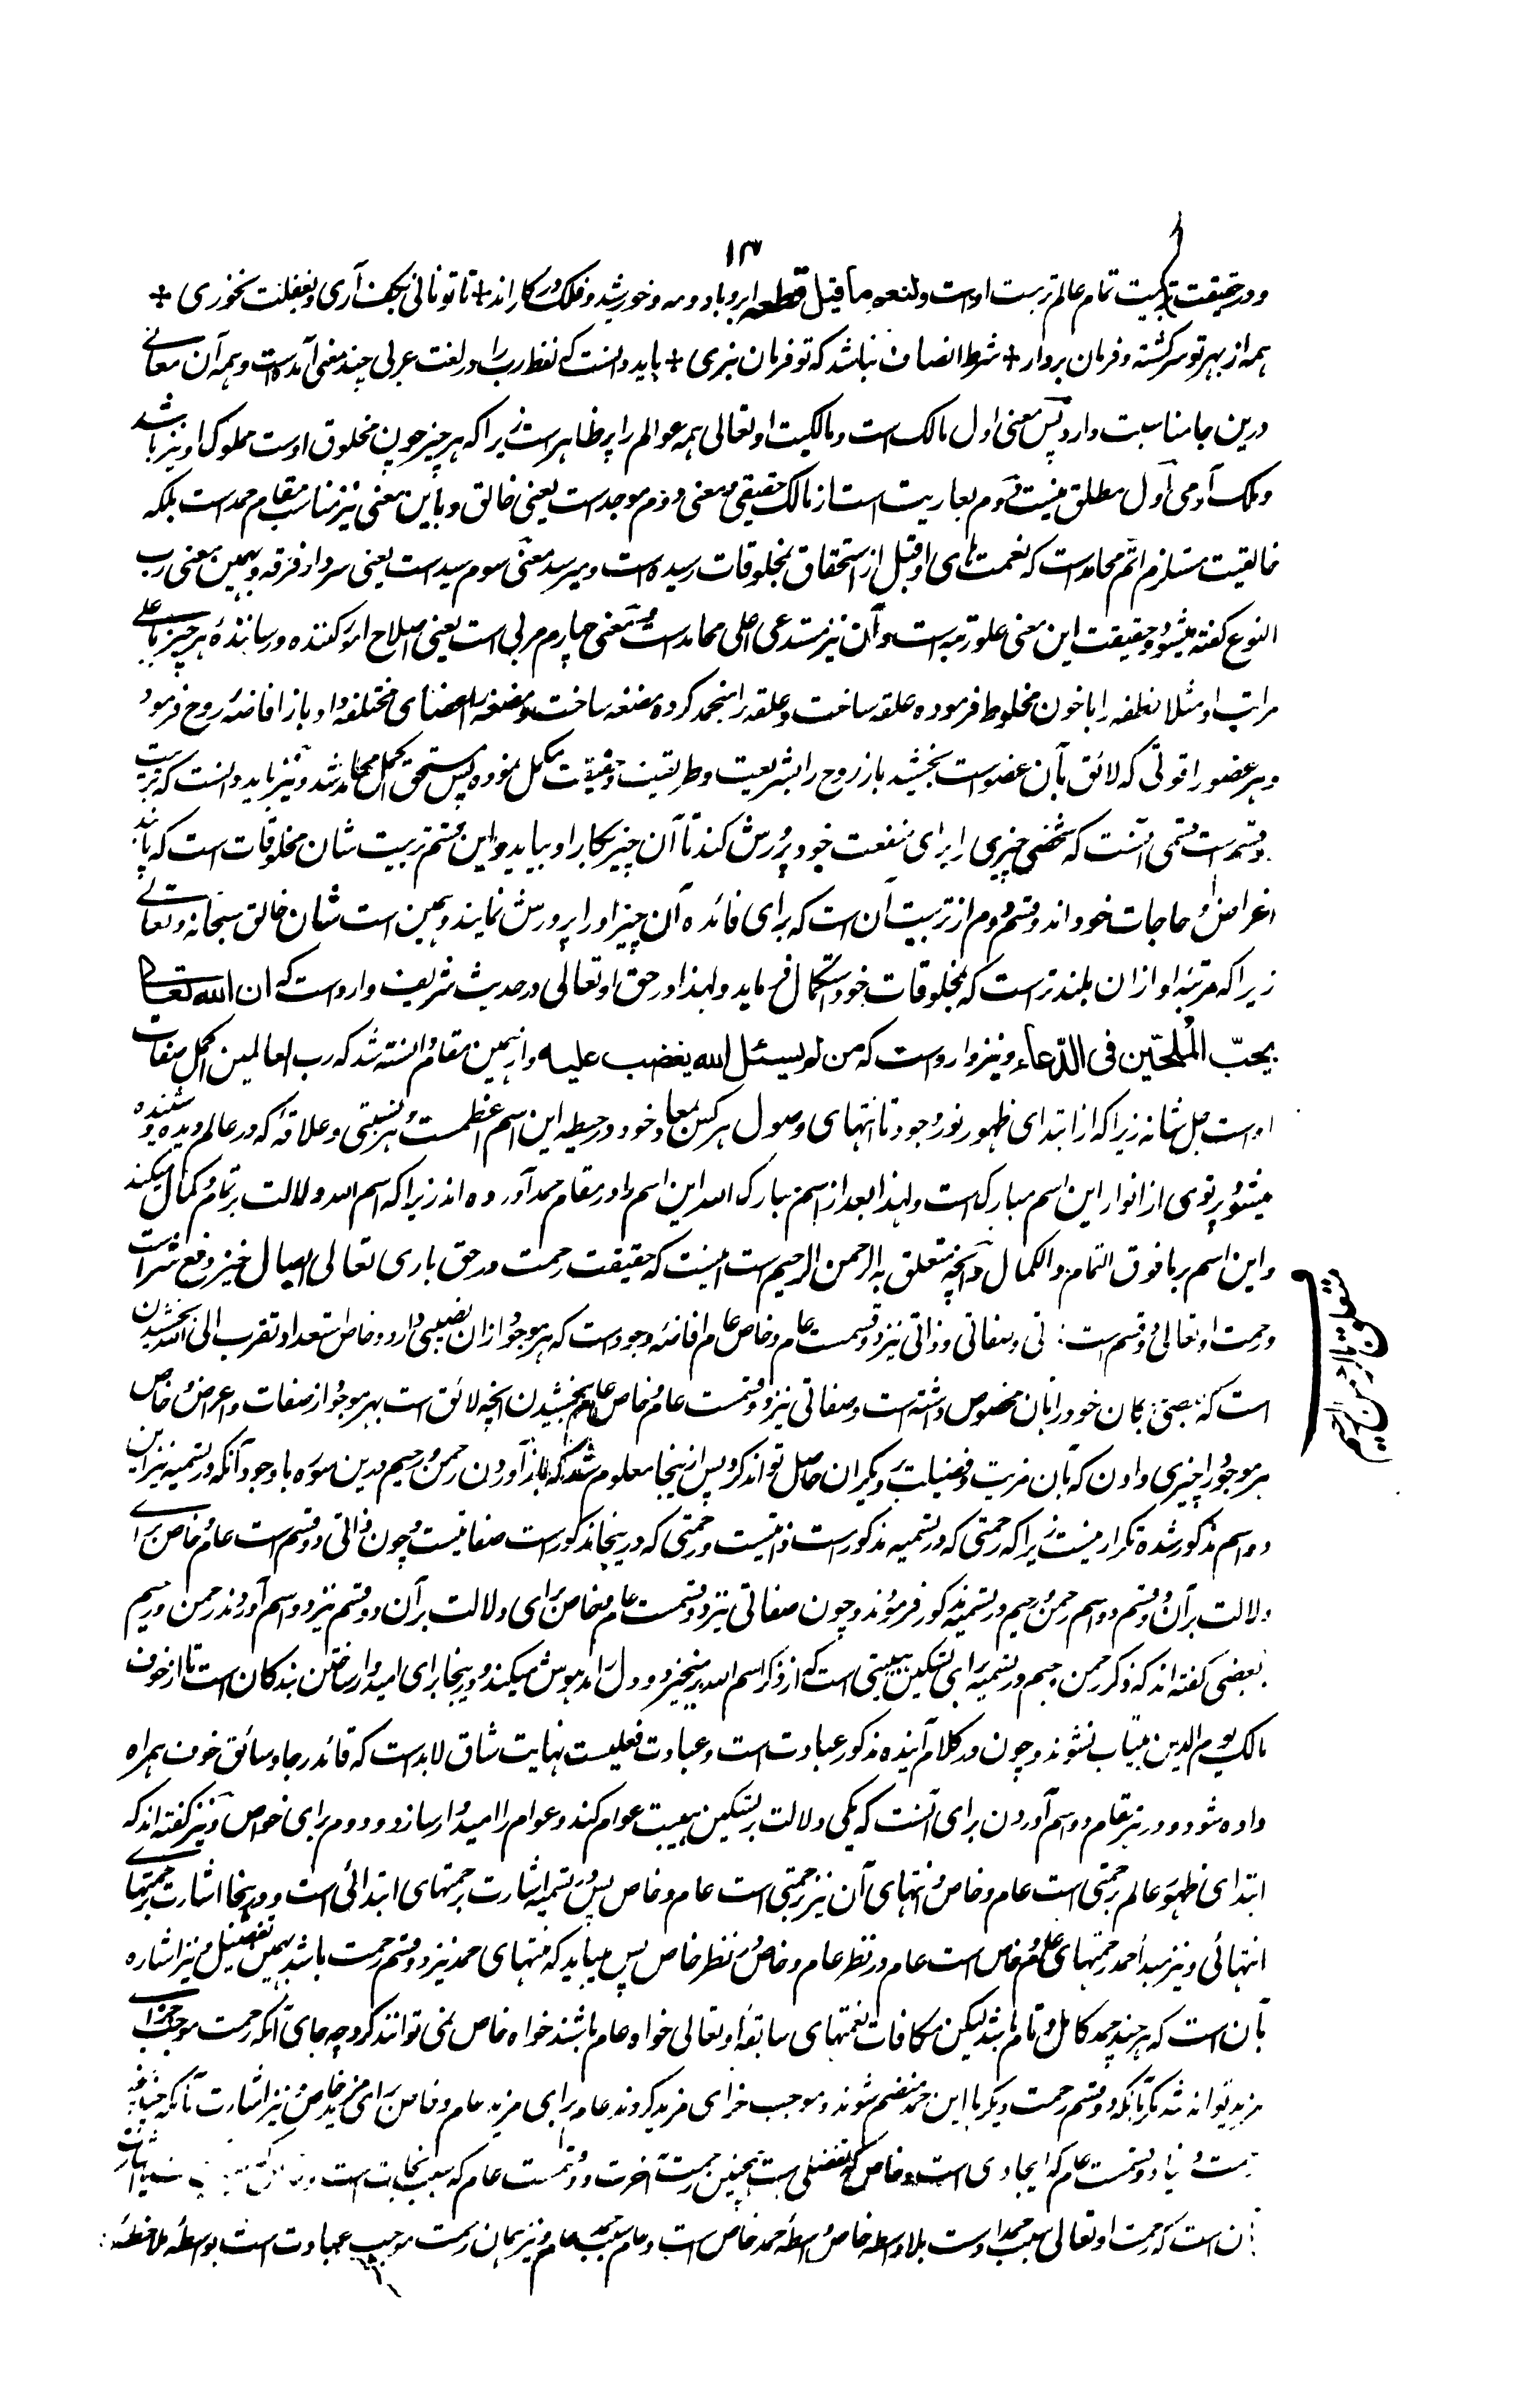 ۱۳
و در حقیقت تربیت تمام عالم تربیت اوست ولنعم ما قیل قطعه ابر و باد و مه و خورشید و فلک در کاراند + تا تو نانی بکف آری و بغفلت نخوری +
همه از بهر تو سرگشته و فرمان بردار + شرط انصاف نباشد که تو فرمان نبری + باید دانست که لفظ رب را در لغت عربی چند معنی آمده است و همه آن معانی
درین جا مناسبت دارد پس معنی اول مالک است و مالکیت او تعالی همه عوالم را پر ظاهر است زیرا که هر چیز چون مخلوق اوست مملوک او نیز باشد
و ملک آدمی اول مطلق نیست دوم بعاریت است از مالک حقیقی و معنی دوم موجد است یعنی خالق و باین معنی نیز مناسب مقام حمد است بلکه
خالقیت مستلزم اتم محامد است که نعمت های او قبل از استحقاق بمخلوقات رسیده است و میرسد معنی سوم سید است یعنی سردار فرقه و بهمین معنی رب
النوع گفته میشود و حقیقت این معنی علو رتبه است و آن نیز مستدعی اعلی محامد است و معنی چهارم مربی است یعنی اصلاح امور کننده و رساننده هر چیز باعلی
مراتب او مثلا نطفه را با خون مخلوط فرموده علقه ساخت و علقه را منجمد کرده مضغه ساخت و مضغه را اعضای مختلفه داد باز افاضه روح فرمود
و هر عضو را قوتی که لائق بآن عضو است بخشید باز روح را بشریعت و طریقت و حقیقت مکمل نموده پس مستحق اکمل محامد شد و نیز باید دانست که تربیت
دو قسم است قسمی آنست که شخصی چیزی را برای منفعت خود پرورش کند تا آن چیز بکار او بیاید و این قسم تربیت شان مخلوقات است که پابند
اغراض و حاجات خود اند و قسم دوم از تربیت آن است که برای فائده آن چیز او را پرورش نمایند و همین است شان خالق سبحانه و تعالی
زیرا که مرتبه او ازان بلندتر است که بمخلوقات خود استکمال فرماید و لهذا در حق او تعالی در حدیث شریف وارد است که ان الله تعالی
یحبّ المُلحّین فی الدّعاء و نیز وارد است که من لم یسئل الله یغضب علیه و از همین مقام دانسته شد که رب العالمین اکمل صفات
اوست جل شانه زیرا که از ابتدای ظهور نور وجود تا انتهای وصول هر کس بمعاد خود در حیطه این اسم اعظم است و هر نسبتی و علاقه که در عالم دیده و شنیده
میشود پرتوی از انوار این اسم مبارک است و لهذا بعد از اسم مبارک الله این اسم را در مقام حمد آورده اند زیرا که اسم الله دلالت بر تمام و کمال میکند
و این اسم بر ما فوق التمام و الکمال و آنچه متعلق به الرحمن الرحیم است اینست که حقیقت رحمت در حق باری تعالی ایصال خیر و دفع شر است
و رحمت او تعالی دو قسم است ذاتی و صفاتی و ذاتی نیز دو قسمست عام و خاص عام افاضه وجود است که هر موجود ازان نصیبی دارد و خاص استعداد تقرب الی الله بخشیدن
است که بعضی بندگان خود را بآن مخصوص داشته است و صفاتی نیز دو قسمت عام و خاص عام بخشیدن آنچه لائق است بهر موجود از صفات و اعراض و خاص
هر موجود را چیزی دادن که بآن مزیت و فضیلت بر دیگران حاصل تواند کرد پس ازینجا معلوم شد که باز آوردن رحمن و رحیم درین سوره با وجود آنکه در تسمیه نیز این
دو اسم مذکور شده تکرار نیست زیرا که رحمتی که در تسمیه مذکور است ذاتیست و رحمتی که درینجا مذکور است صفاتیست و چون ذاتی دو قسم است عام و خاص برای
دلالت بر آن دو قسم دو اسم رحمن و رحیم در تسمیه مذکور فرمودند و چون صفاتی نیز دو قسمت عام و خاص برای دلالت بر آن دو قسم نیز دو اسم آوردند رحمن و رحیم
بعضی گفته اند که ذکر رحمن و رحیم در تسمیه برای تسکین هیبتی است که از ذکر اسم الله برمیخیزد و دل را مدهوش میکند و درینجا برای امیدوار ساختن بندگان است تا از خوف
مالک یوم الدین بیتاب نشوند و چون در کلام آینده مذکور عبادت است و عبادت فعلیست نهایت شاق لابد است که قائد رجا و سائق خوف همراه
داده شود و در هر مقام دو اسم آوردن برای آنست که یکی دلالت بر تسکین هیبت عوام کند و عوام را امیدوار سازد و دوم برای خواص و نیز گفته اند که
ابتدای ظهور عالم رحمتی است عام و خاص و انتهای آن نیز رحمتی است عام و خاص پس در تسمیه اشارت برحمتهای ابتدائی است و درینجا اشارت برحمتهای
انتهائی و نیز مبدأ حمد رحمتهای عام و خاص است عام در نظر عام و خاص در نظر خاص پس میباید که منتهای حمد نیز دو قسم رحمت باشد بهمین تفصیل و نیز اشاره
بآن است که هر چند حمد کامل و تام باشد لیکن مکافات نعمتهای سابقه او تعالی خواه عام باشند خواه خاص نمی توانند کرد چه جای آنکه رحمت موجب جزای
مزید تواند شد مگر بآنکه دو قسم رحمت دیگر با این حمد منضم شوند و موجب جزای مزید گردند عام برای مزید عام و خاص برای مزید خاص و نیز اشارت بآنکه چنانچه
رحمت دنیا دو قسمت عام که ایجادی است و خاص که تفضلی است همچنین رحمت آخرت دو قسمت عام که سبب نجات است
آن است که رحمت او تعالی سبب حمد اوست بلا واسطه خاص و بواسطه حمد خاص است و عام سبب حمد عام و نیز همان رحمت موجب عبادت است بواسطه ملاحظه
متعلق بالرحمن الرحیم